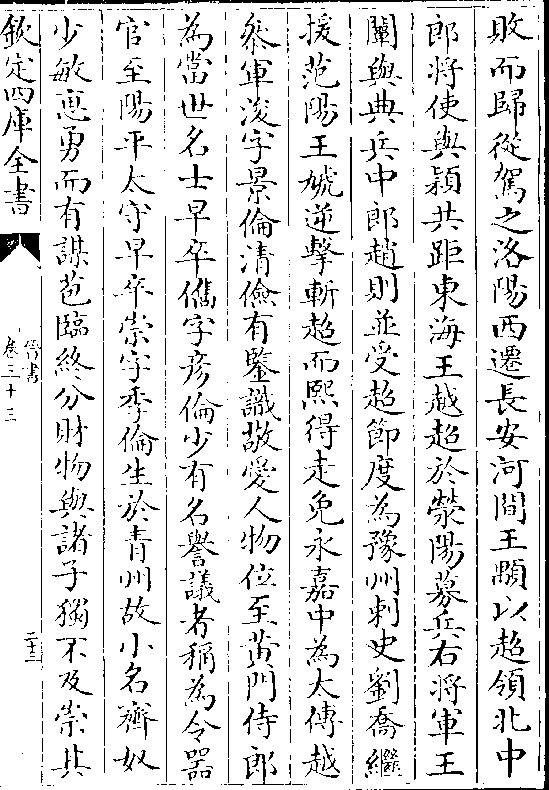 敗而歸從駕之洛陽西遷長安河間王顒以超領北中
郎將使與穎共距東海王越超於滎陽募兵右將軍王
闡與典兵中郎趙則並受超節度為豫州刺史劉喬繼
援范陽王虓逆擊斬超而熙得走免永嘉中為太傅越
參軍浚字景倫清儉有鑒識敬愛人物位至黃門侍郎
為當世名士早卒儁字彦倫少有名譽議者稱為令器
官至陽平太守早卒崇字季倫生於青州故小名齊奴
少敏惠勇而有謀苞臨終分財物與諸子獨不及崇其
欽定四庫全書
晉書
卷三十三
二十三